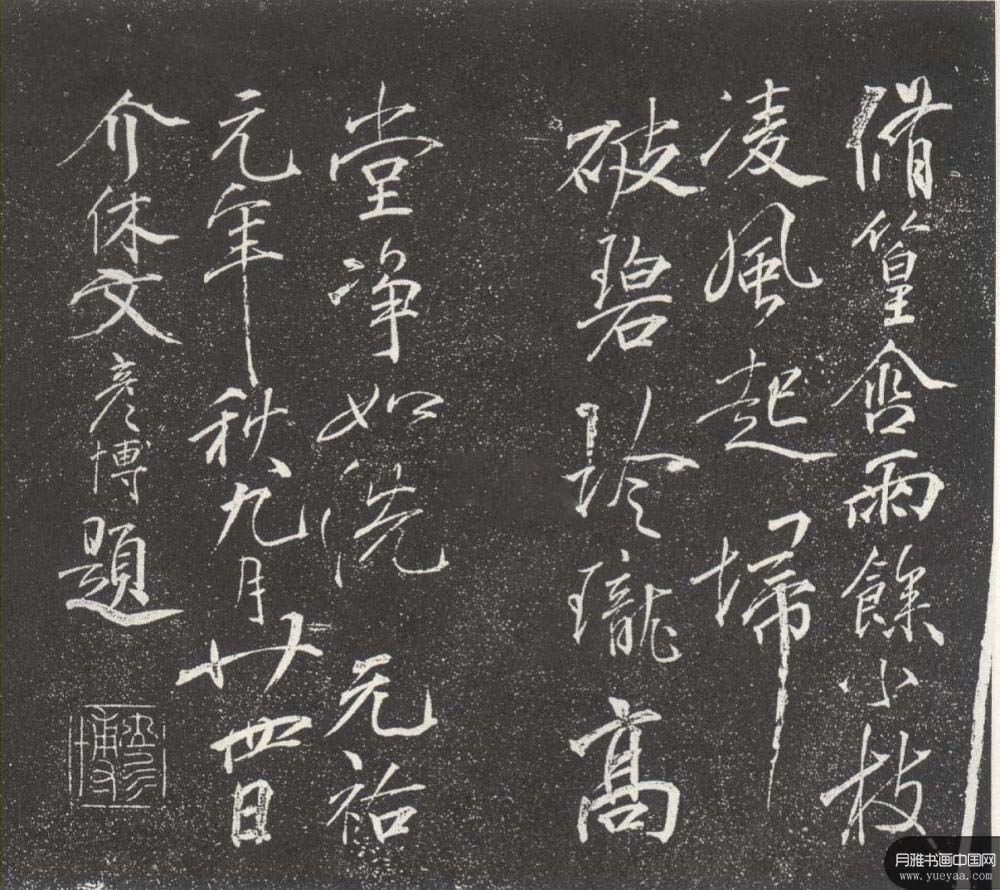 脩篁含雨餘小枝
凌風起埽
破碧玲瓏高
堂净如洗 元祐
元年秋九月廿四日
介休文彥博題
彥博
月雅书画中国网
www.yueyaa.com